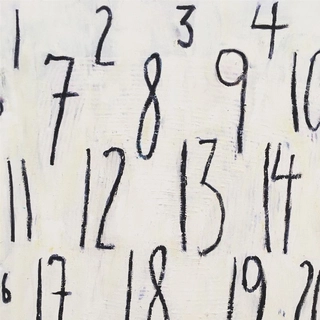 1 2 3 4
7 8 9 10
11 12 13 14
6 17 18 19